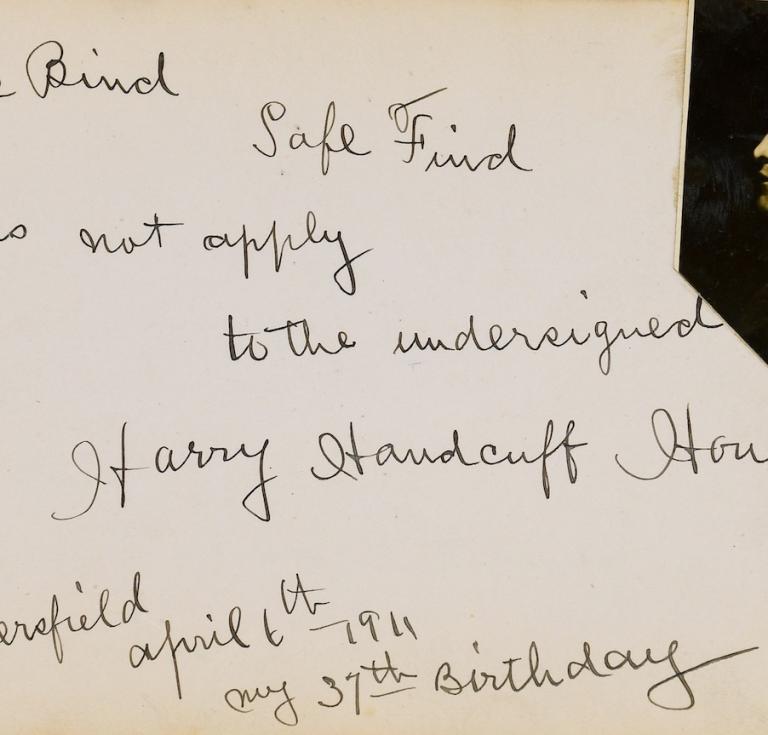 Bind
Safe Find
not apply
to the undersigned
Harry Handcuff Hou
ersfield
april 6th - 1911
my 37th Birthday